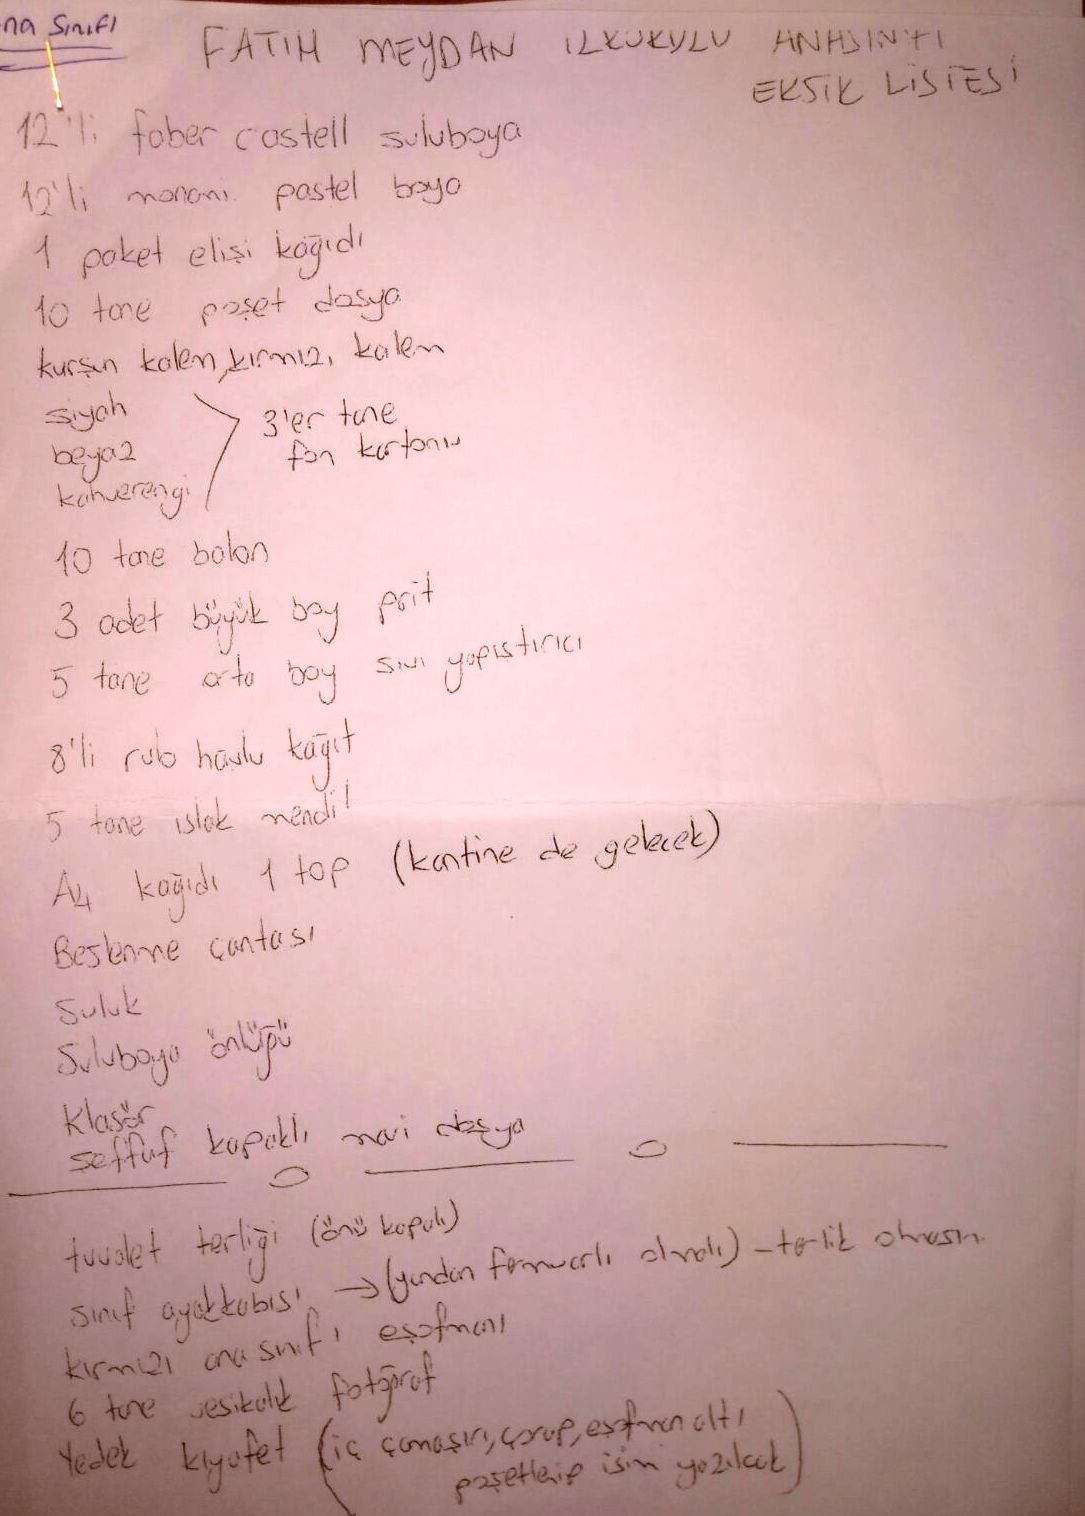 na sınıfı
FATIH MEYDAN ILKOKULU ANASINIFI
EKSİK LİSTESİ
12'li faber castell suluboya
12'li monami pastel boya
1 paket elişi kağıdı
10 tane poşet dosya
kurşun kalem, kırmızı kalem
siyah
beyaz
kahverengi
3'er tane
fon kartonu
10 tane balon
3 adet büyük boy prit
5 tane orta boy sıvı yapıştırıcı
8'li rulo havlu kağıt
5 tane ıslak mendil
A4 kağıdı 1 top (kantine de gelecek)
Beslenme çantası
Suluk
Suluboya önlüğü
Klasör
seffaf kapaklı mavi dosya
tuvalet terliği (önü kapalı)
sınıf ayakkabısı → (yandan fermuarlı olmalı) - terlik olmasın.
kırmızı ana sınıfı eşofmanı
6 tane vesikalık fotoğraf
Yedek kıyafet (iç çamaşırı, çorap, eşofman altı
poşetlenip isim yazılacak)